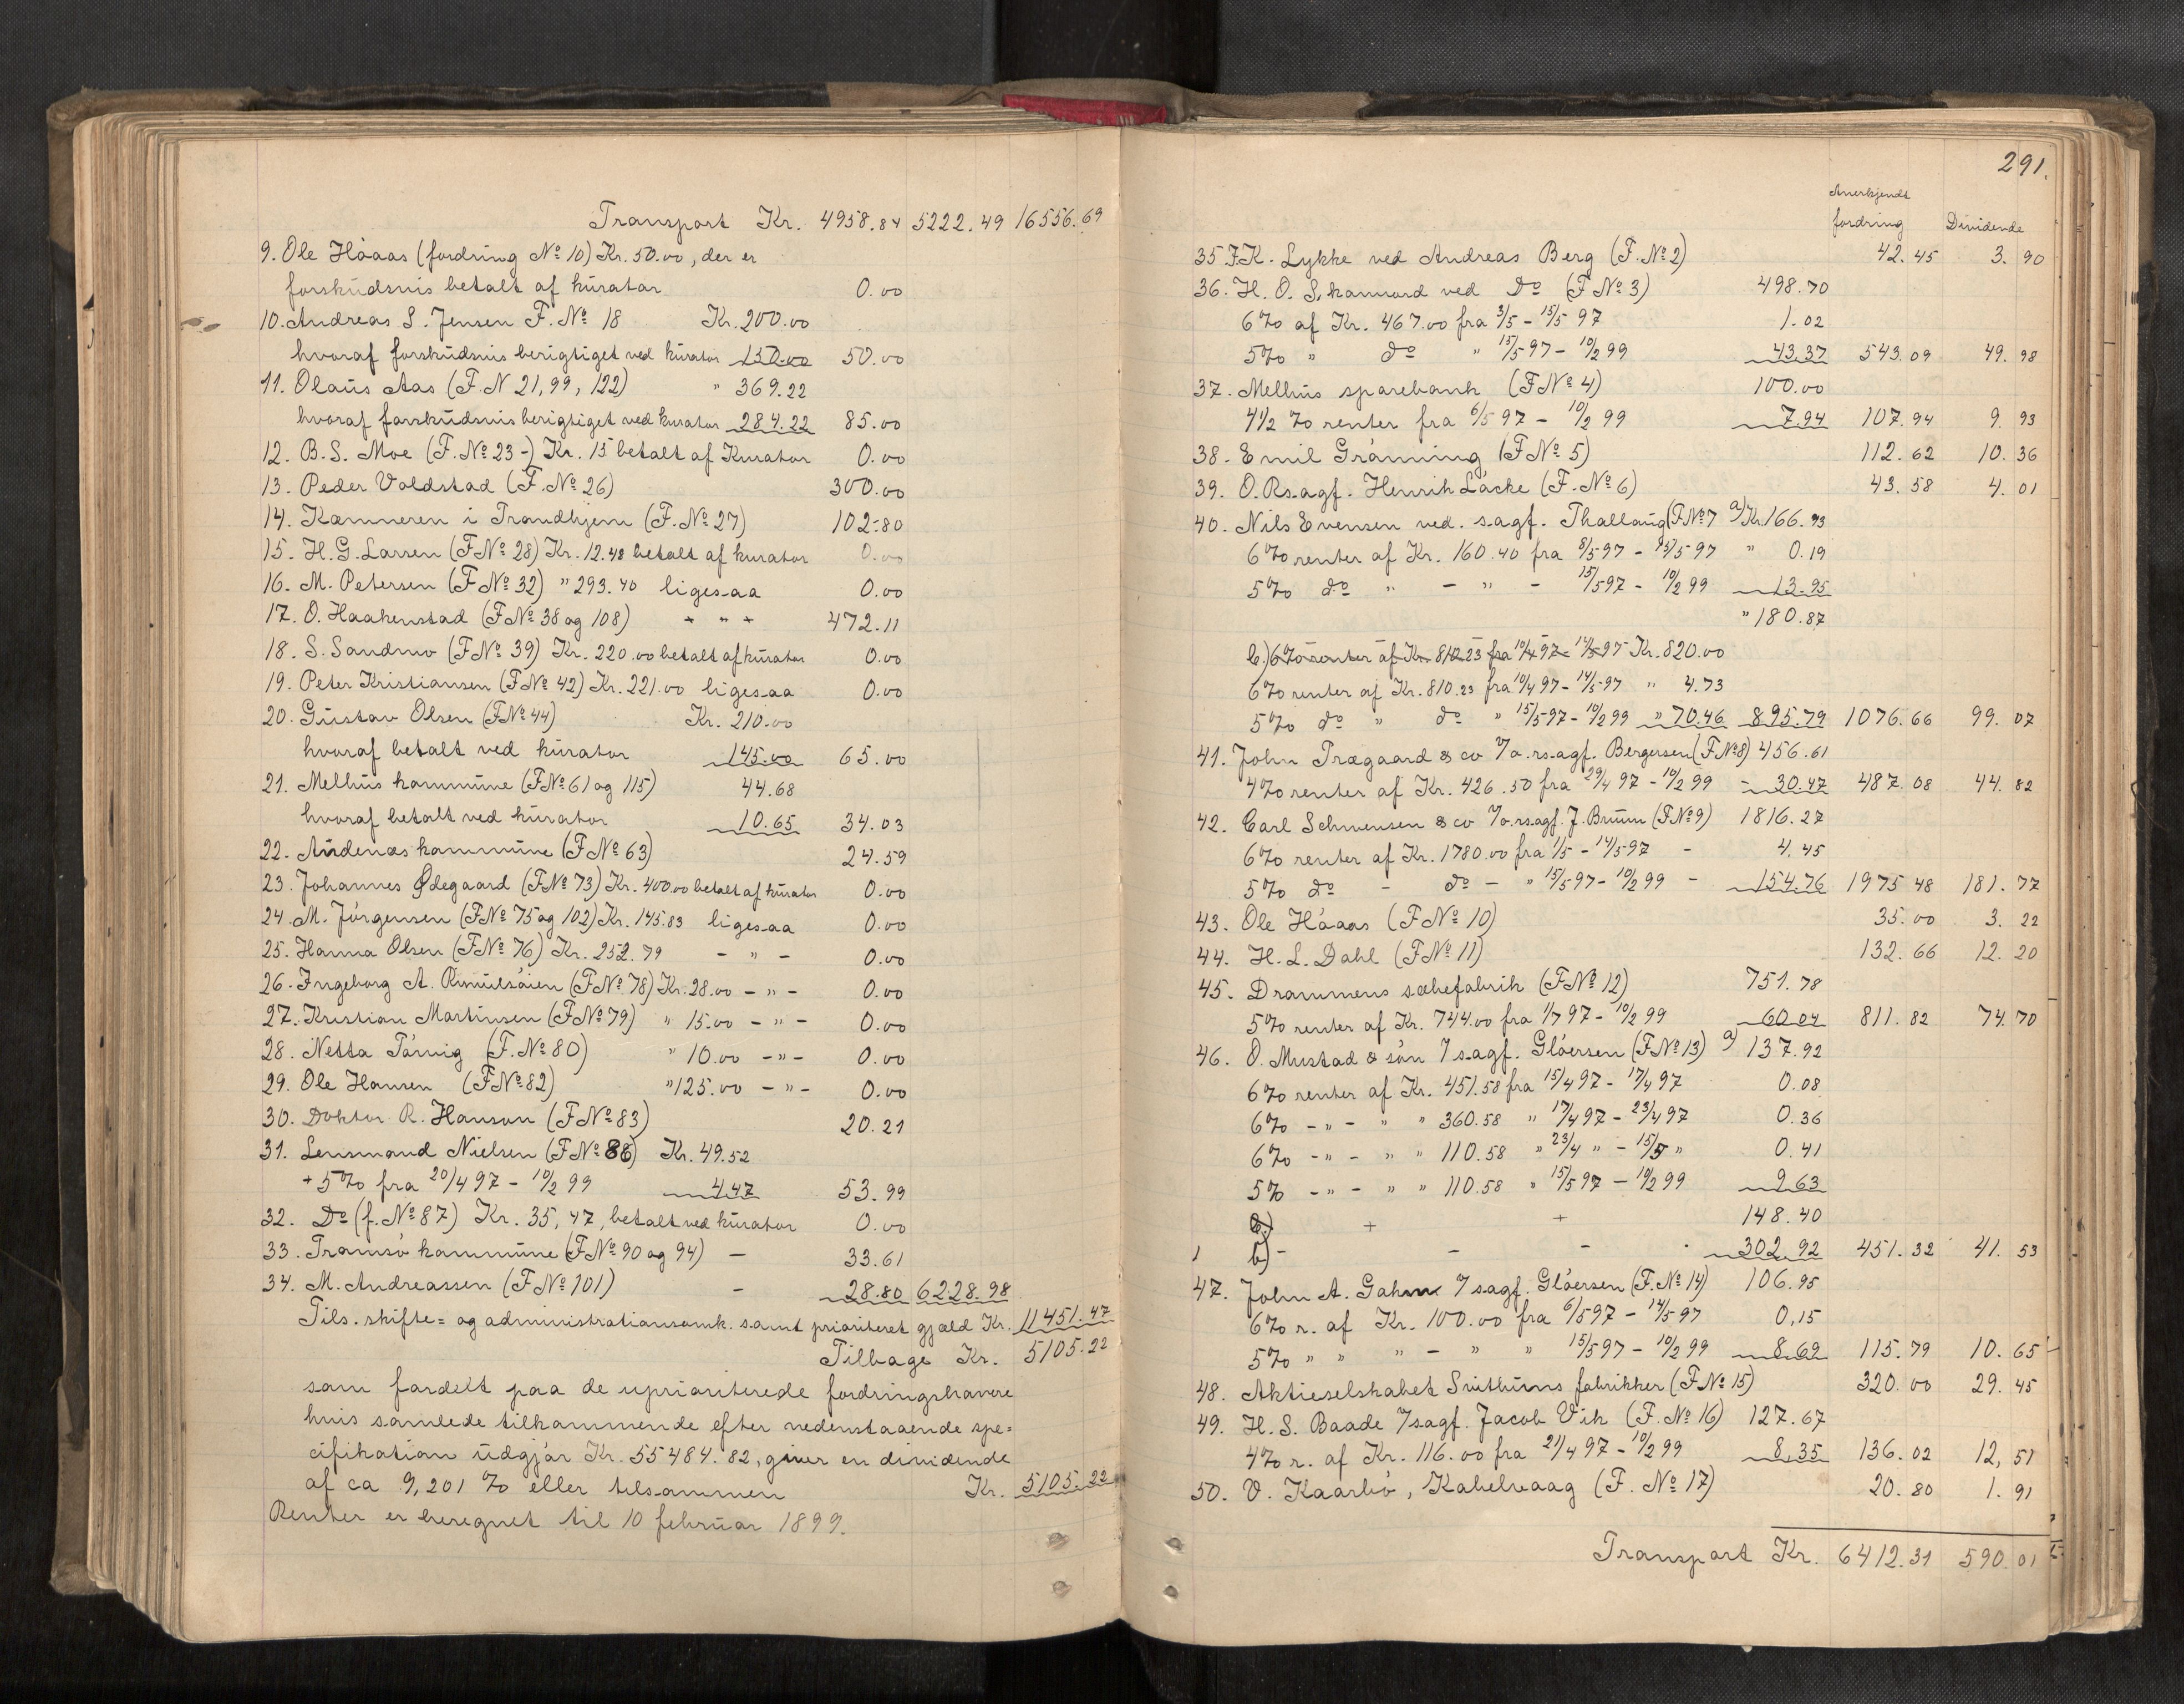 Transport Kr. 4958.84 5222.49 16556.69
9. Ole Håaas (fordring No 10) Kr. 50.00, der er
forskudsvis betalt af kurator 0.00
10. Andreas S. Jensen F. No 18 Kr. 200.00
hvoraf forskudsvis berigtiget ved kurator 150.00 50.00
11. Olaus Aas (F. N 21, 99, 122) " 369.22
hvoraf forskudsvis berigtiget ved kurator 284.22 85.00
12. B. S. Moe (F. No 23-) Kr. 15 betalt af Kurator 0.00
13. Peder Valdstad (F. No 26) 300.00
14. Kæmneren i Trondhjem (F. No 27) 102.80
15. H. G. Larsen (F No 28) Kr. 12.48 betalt af kurator 0.00
16. M. Petersen (F No 32) " 293.40 ligesaa 0.00
17. O. Haakenstad (F No 38 og 108) + " + 472.11
18. S. Sandmo (F No 39) Kr. 220.00 betalt af kurator 0.00
19. Peter Kristiansen (F No 42) Kr. 221.00 ligesaa 0.00
20. Gustav Olsen (F No 44) Kr. 210.00
hvoraf betalt ved kurator 145.00 65.00
21. Melhus kommune (F No 61 og 115) 44.68
hvoraf betalt ved kurator 10.65 34.03
22. Andenæs kommune (F No 63) 24.59
23. Johannes Ødegaard (F No 73) Kr. 400.00 betalt af kurator 0.00
24. M. Jørgensen (F No 75 og 102) Kr. 145.83 ligesaa 0.00
25. Hanna Olsen (F No 76) Kr. 252.79 - " - 0.00
26. Ingeborg A. Rimulsøien (F No 78) Kr. 28.00 - " - 0.00
27. Kristian Martinsen (F No 79) " 15.00 - " - 0.00
28. Netta Tårvig (F. No 80) " 10.00 - " - 0.00
29. Ole Hansen (F No 82) " 125.00 - " - 0.00
30. Doktor R. Hanson (F No 83) 20.21
31. Lensmand Nielsen (F No 86) Kr. 49.52
+ 5% fra 20/4 97 - 10/2 99 4.47 53.99
32. Do (f. No 87) Kr. 35,47, betalt ved kurator 0.00
33. Tromsø kommune (F No 90 og 94) - 33.61
34. M. Andreassen (F No 101) - 28.80 6228.98
Tils. skifte= og administrationsomk. samt prioriteret gjæld Kr. 11451.47
Tilbage Kr. 5105.22
som fordelt paa de uprioriterede fordringshavere
hvis samlede tilkommende efter nedenstaaende spe=
cifikation udgjør Kr. 55484.82, giver en dividende
af ca 9,201 % eller tilsammen Kr. 5105.22
Renter er beregnet til 10 februar 1899.
291.
Anerkjendt
fordring Dividende
35 F.K. Lykke ved Andreas Berg (F. No 2) 42.45 3.90
36. H. O. Skannord ved Do (F No 3) 498.70
6% af Kr. 467.00 fra 3/5 - 15/5 97 1.02
5% " do " 15/5 97 - 10/2 99 43.37 543.09 49.98
37. Melhus sparebank (F No 4) 100.00
4 1/2 % renter fra 6/5 97 - 10/2 99 7.94 107.94 9.93
38. Emil Grønning (F No 5) 112.62 10.36
39. O.Rsagf. Henrik Løcke (F. No 6) 43.58 4.01
40. Nils Evensen ved. sagf. Thallaug (F No 7 a) Kr. 166.73
6% renter af Kr. 160.40 fra 8/5 97 - 15/5 97 " 0.19
5% do " - " - 15/5 97 - 10/2 99 13.95
" 180.87
b.) 6% renter af Kr. 810.23 fra 10/4 97 - 14/5 97 Kr. 820.00
6% renter af Kr. 810.23 fra 10/4 97 - 14/5 97 " 4.73
5% do " do " 15/5 97 - 10/2 99 " 70.46 895.79 1076.66 99.07
41. John Trægaard & co v/o.rs.agf. Bergersen (F No 8) 456.61
4% renter af Kr. 426.50 fra 29/4 97 - 10/2 99 - 30.47 487.08 44.82
42. Carl Schwensen & co v/o.rsagf. J. Bruun (F No 9) 1816.27
6% renter af Kr. 1780.00 fra 1/5 - 14/5 97 - 4.45
5% do - do - " 15/5 97 - 10/2 99 - 154.76 1975 48 181.77
43. Ole Håaas (F No 10) 35.00 3.22
44. H. L. Dahl (F No 11) 132.66 12.20
45. Drammens sæbefabrik (F No 12) 751.78
5% renter af Kr. 744.00 fra 1/7 97 - 10/2 99 60.04 811.82 74.70
46. O. Mustad & søn v/sagf. Gløersen (F No 13) a) 137.92
6% renter af Kr. 451.58 fra 15/4 97 - 17/4 97 0.08
6% - " - " " 360.58 " 17/4 97 - 23/4 97 0.36
6% - " - " " 110.58 " 23/4 " - 15/5 " 0.41
5% - " - " " 110.58 " 15/5 97 - 10/2 99 9.63
b.) + + 148.40
1 b) - - - 302.92 451.32 41.53
47. John A. Gahm v/sagf. Gløersen (F. No 14) 106.95
6% r. af Kr. 100.00 fra 6/5 97 - 14/5 97 0,15
5% " " " - " " 15/5 97 - 10/2 99 8.69 115.79 10.65
48. Aktieselskabet Svithuns fabrikker (F No 15) 320.00 29.45
49. H. S. Baade v/sagf. Jacob Vik (F. No 16) 127.67
4% r. af Kr. 116.00 fra 21/4 97 - 10/2 99 8.35 136.02 12,51
50. O. Kaarbø, Kabelvaag (F. No 17) 20.80 1.91
Transport Kr. 6412.31 590.01